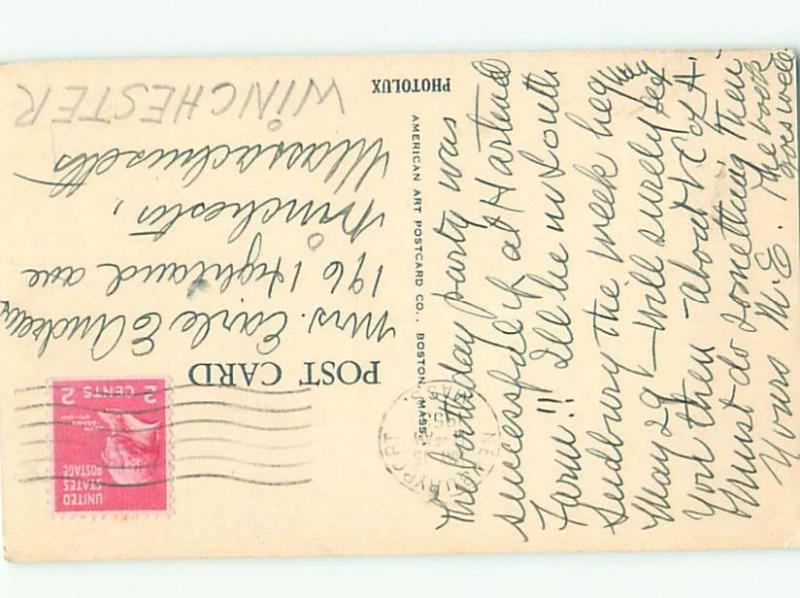 PHOTOLUX
POST CARD
AMERICAN ART POSTCARD CO., BOSTON, MASS.
UNITED
STATES
POSTAGE
2 CENTS 2
NEWBURYPORT
MASS
The birthday party was
successful if at Hartwell
Farm!! I'll be in South
Sudbury the week beg
May 29 - Will surely see
York then - about N.E. of A.
Must do something then
Yours M.E. The book
goes well.
Mrs. Earle E Andrews
196 Highland ave
Winchester,
Massachusetts
WINCHESTER